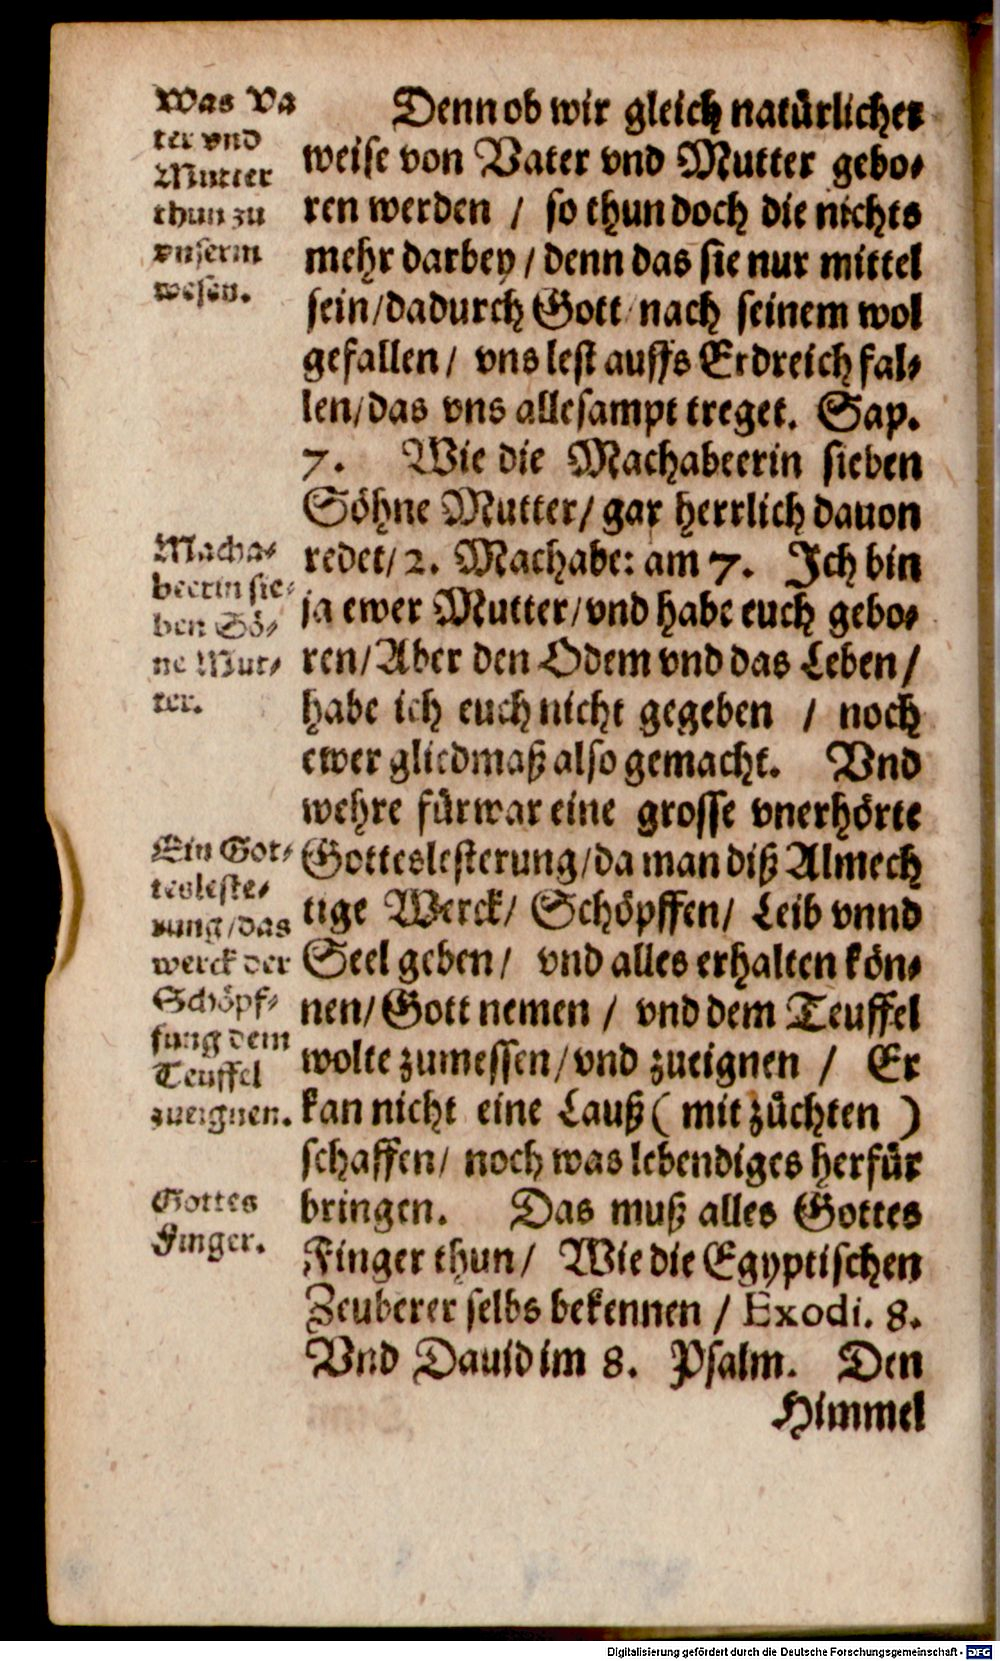 Was Va
ter vnd
Mutter
thun zu
vnserm
wesen.
Denn ob wir gleich natürlicher
weise von Vater vnd Mutter gebo⸗
ren werden / so thun doch die nichts
mehr darbey / denn das sie nur mittel
sein / dadurch Gott / nach seinem wol
gefallen / vns lest auffs Erdreich fal⸗
len / das vns allesampt treget. Sap.
7. Wie die Machabeerin sieben
Söhne Mutter / gar herrlich dauon
Macha⸗
beerin sie⸗
ben Sö⸗
ne Mut⸗
ter.
redet / 2. Machabe: am 7. Ich bin
ja ewer Mutter / vnd habe euch gebo⸗
ren / Aber den Odem vnd das Leben /
habe ich euch nicht gegeben / noch
ewer gliedmaß also gemacht. Vnd
wehre fürwar eine grosse vnerhörte
Ein Got⸗
tesleste⸗
rung / das
werck der
Schöpf⸗
fung dem
Teuffel
zueignen.
Gotteslesterung / da man diß Almech
tige Werck / Schöpffen / Leib vnnd
Seel geben / vnd alles erhalten kön⸗
nen / Gott nemen / vnd dem Teuffel
wolte zumessen / vnd zueignen / Er
kan nicht eine Lauß ( mit züchten )
schaffen / noch was lebendiges herfür
Gottes
Finger.
bringen. Das muß alles Gottes
Finger thun / Wie die Egyptischen
Zeuberer selbs bekennen / Exodi. 8.
Vnd Dauid im 8. Psalm. Den
Himmel
Digitalisierung gefördert durch die Deutsche Forschungsgemeinschaft - DFG